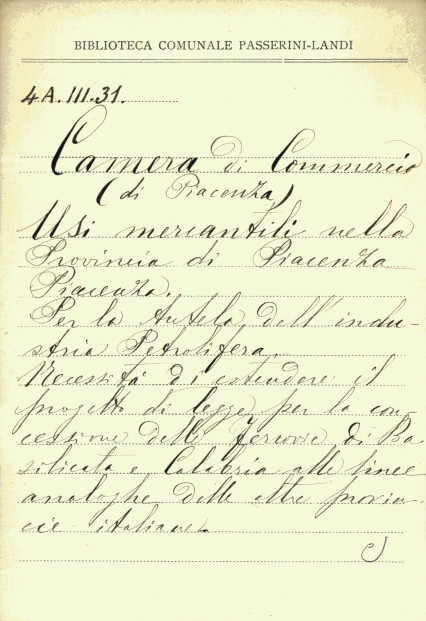 BIBLIOTECA COMUNALE PASSERINI-LANDI
4A.III.31.
Camera di Commercio
(di Piacenza)
Usi mercantili nella
Provincia di Piacenza
Piacenza.
Per la tutela dell'indu-
stria Petrolifera.
Necessità di estendere il
progetto di legge per la con-
cessione delle Ferrovie di Ba
silicata e Calabria alle linee
analoghe delle altre provin-
cie italiane.